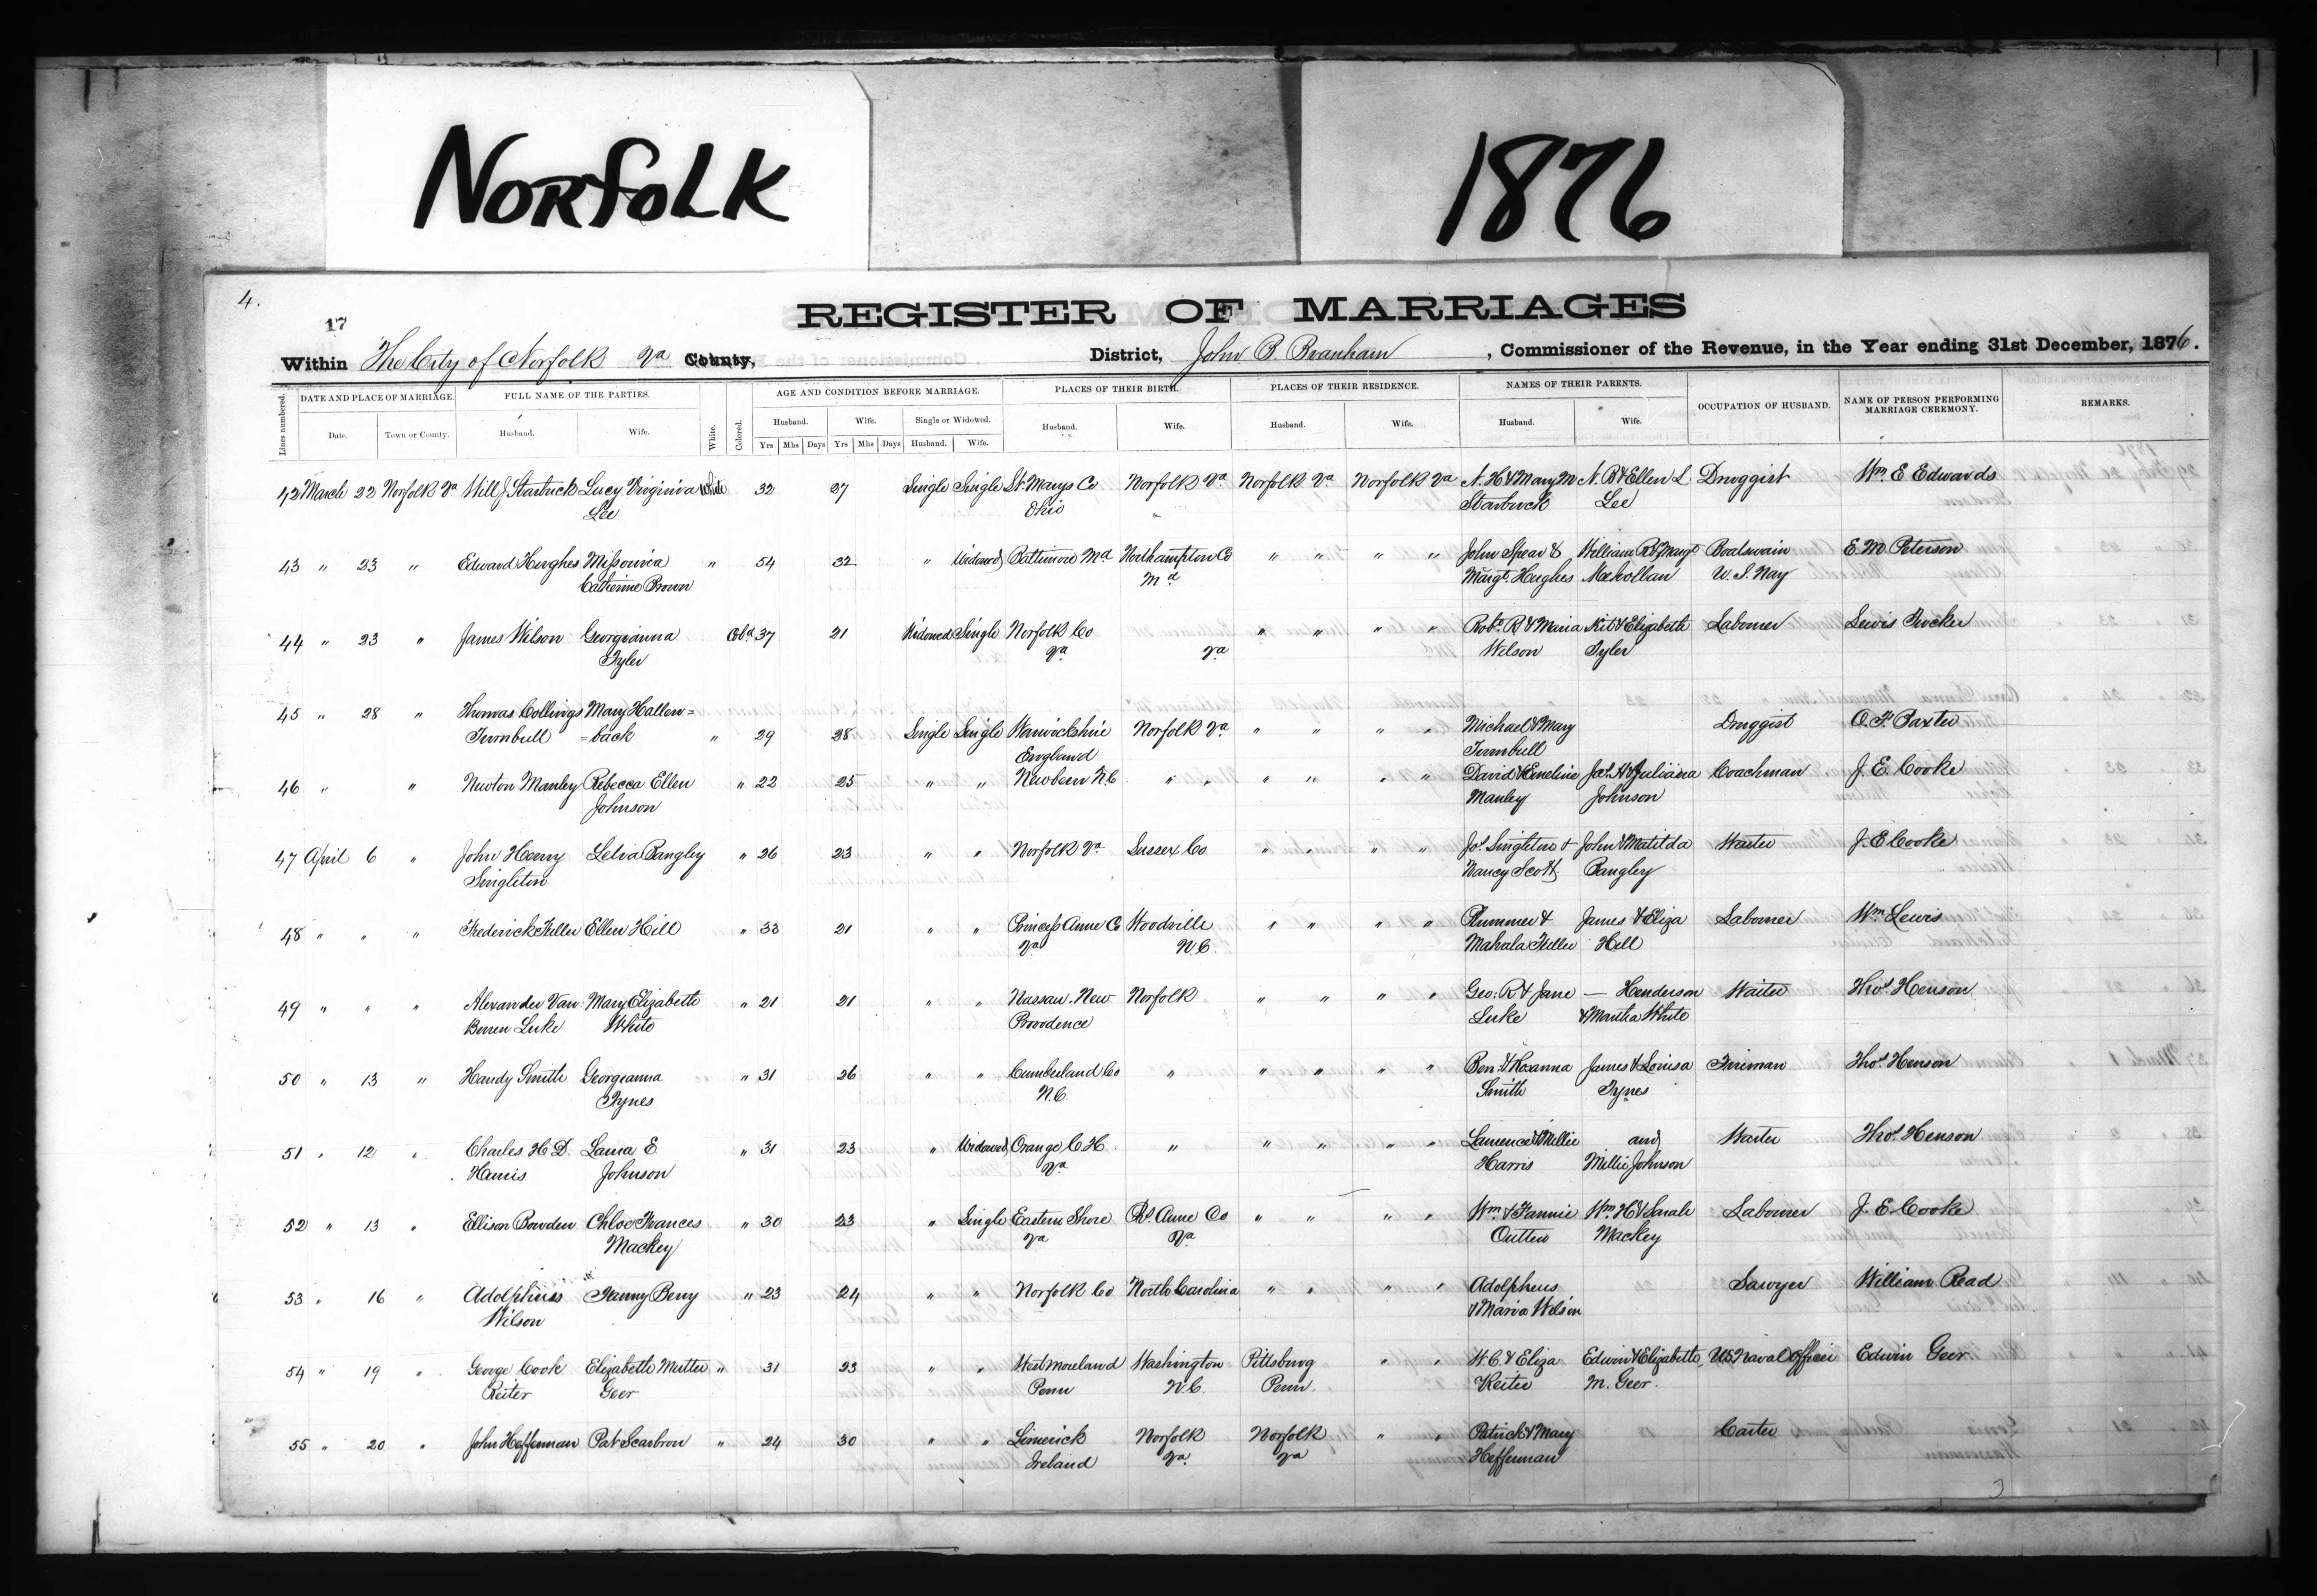 NORFOLK
1876
4.
17
REGISTER OF MARRIAGES
Within The City of Norfolk Va County, District, John B. Branham, Commissioner of the Revenue, in the Year ending 31st December, 1876.
Lines numbered. DATE AND PLACE OF MARRIAGE. FULL NAME OF THE PARTIES. White. Colored. AGE AND CONDITION BEFORE MARRIAGE. PLACES OF THEIR BIRTH. PLACES OF THEIR RESIDENCE. NAMES OF THEIR PARENTS. OCCUPATION OF HUSBAND. NAME OF PERSON PERFORMING MARRIAGE CEREMONY. REMARKS.
Date. Town or County. Husband. Wife. Husband. Wife. Single or Widowed. Husband. Wife. Husband. Wife. Husband. Wife.
Yrs Mhs Days Yrs Mhs Days Husband. Wife.
42 March 22 Norfolk Va Will J Starbuck Lucy Virginia White 32 27 Single Single St Marys Co Norfolk Va Norfolk Va Norfolk Va N. H & Mary M N. B & Ellen L Druggist Wm E Edwards
Lee Ohio Starbuck Lee
43 " 23 " Edward Hughes Missouria " 54 32 " Widowed Baltimore Md Northampton Co " " " " John Spear & William R & Margt Boatswain E. M Peterson
Catherine Brown Md Margt Hughes U. S. Nay
44 " 23 " James Wilson Georgianna Cold 37 21 Widowed Single Norfolk Co " " " " Robt R & Maria Kit & Elizabeth Laborer Lewis Tucker
Tyler Va Va Wilson Tyler
45 " 28 " Thomas Collings Mary Hallen=
Turnbull =back " 29 28 Single Single Warwickshire Norfolk Va " " " " Michael & Mary Druggist O. F. Baxter
England Turnbull
46 " " Newton Manley Rebecca Ellen " 22 25 " " Newbern N.C " " " " " " David & Emeline Jas H & Juliana Coachman J. E. Cooke
Johnson Manley Johnson
47 April 6 " John Henry Lelia Bangley " 26 23 " " Norfolk Va Sussex Co " " " " Jos Singleton & John & Matilda Waiter J. E Cooke
Singleton Nancy Scott Bangley
48 " " " Frederick Fuller Ellen Hill " 33 21 " " Princess Anne Co Woodville " " " " Plummer & James & Eliza Laborer Wm Lewis
Va N. C. Mahala Fuller Hill
49 " " " Alexander Van Mary Elizabeth " 21 21 " " Nassau. New Norfolk " " " " Geo: R & Jane — Henderson Waiter Thos Henson
Buren Luke White Providence Luke & Martha White
50 " 13 " Handy Smith Georgeanna " 31 26 " " Cumberland Co " " " " " Ben: & Roxanna James & Louisa Fireman Thos Henson
Tynes N. C. Smith Tynes
51 " 12 " Charles H D. Laura E " 31 23 " Widowed Orange C. H. " " " " " Laurence & Millie and Waiter Thos Henson
Harris Johnson Va Harris Millie Johnson
52 " 13 " Ellison Bowden Chloe Frances " 30 23 " Single Eastern Shore Ps Anne Co " " " " Wm & Fannie Wm H & Sarah Laborer J. E. Cooke
Mackey Va Va Outten Mackey
53 " 16 " Adolphus Fanny Berry " 23 24 " " Norfolk Co North Carolina " " " " Adolpheus Sawyer William Read
Wilson & Maria Wilson
54 " 19 " George Cook Elizabeth Mutter " 31 23 " " West moreland Washington Pittsburg " " W. C. & Eliza Edwin & Elizabeth U S Naval Officer Edwin Geer
Reiter Geer Penn N. C. Penn. Reiter M. Geer.
55 " 20 " John Heffernan Pat Scarbron " 24 30 " " Limerick Norfolk Norfolk " " Patrick & Mary Carter
Ireland Va Va Heffernan